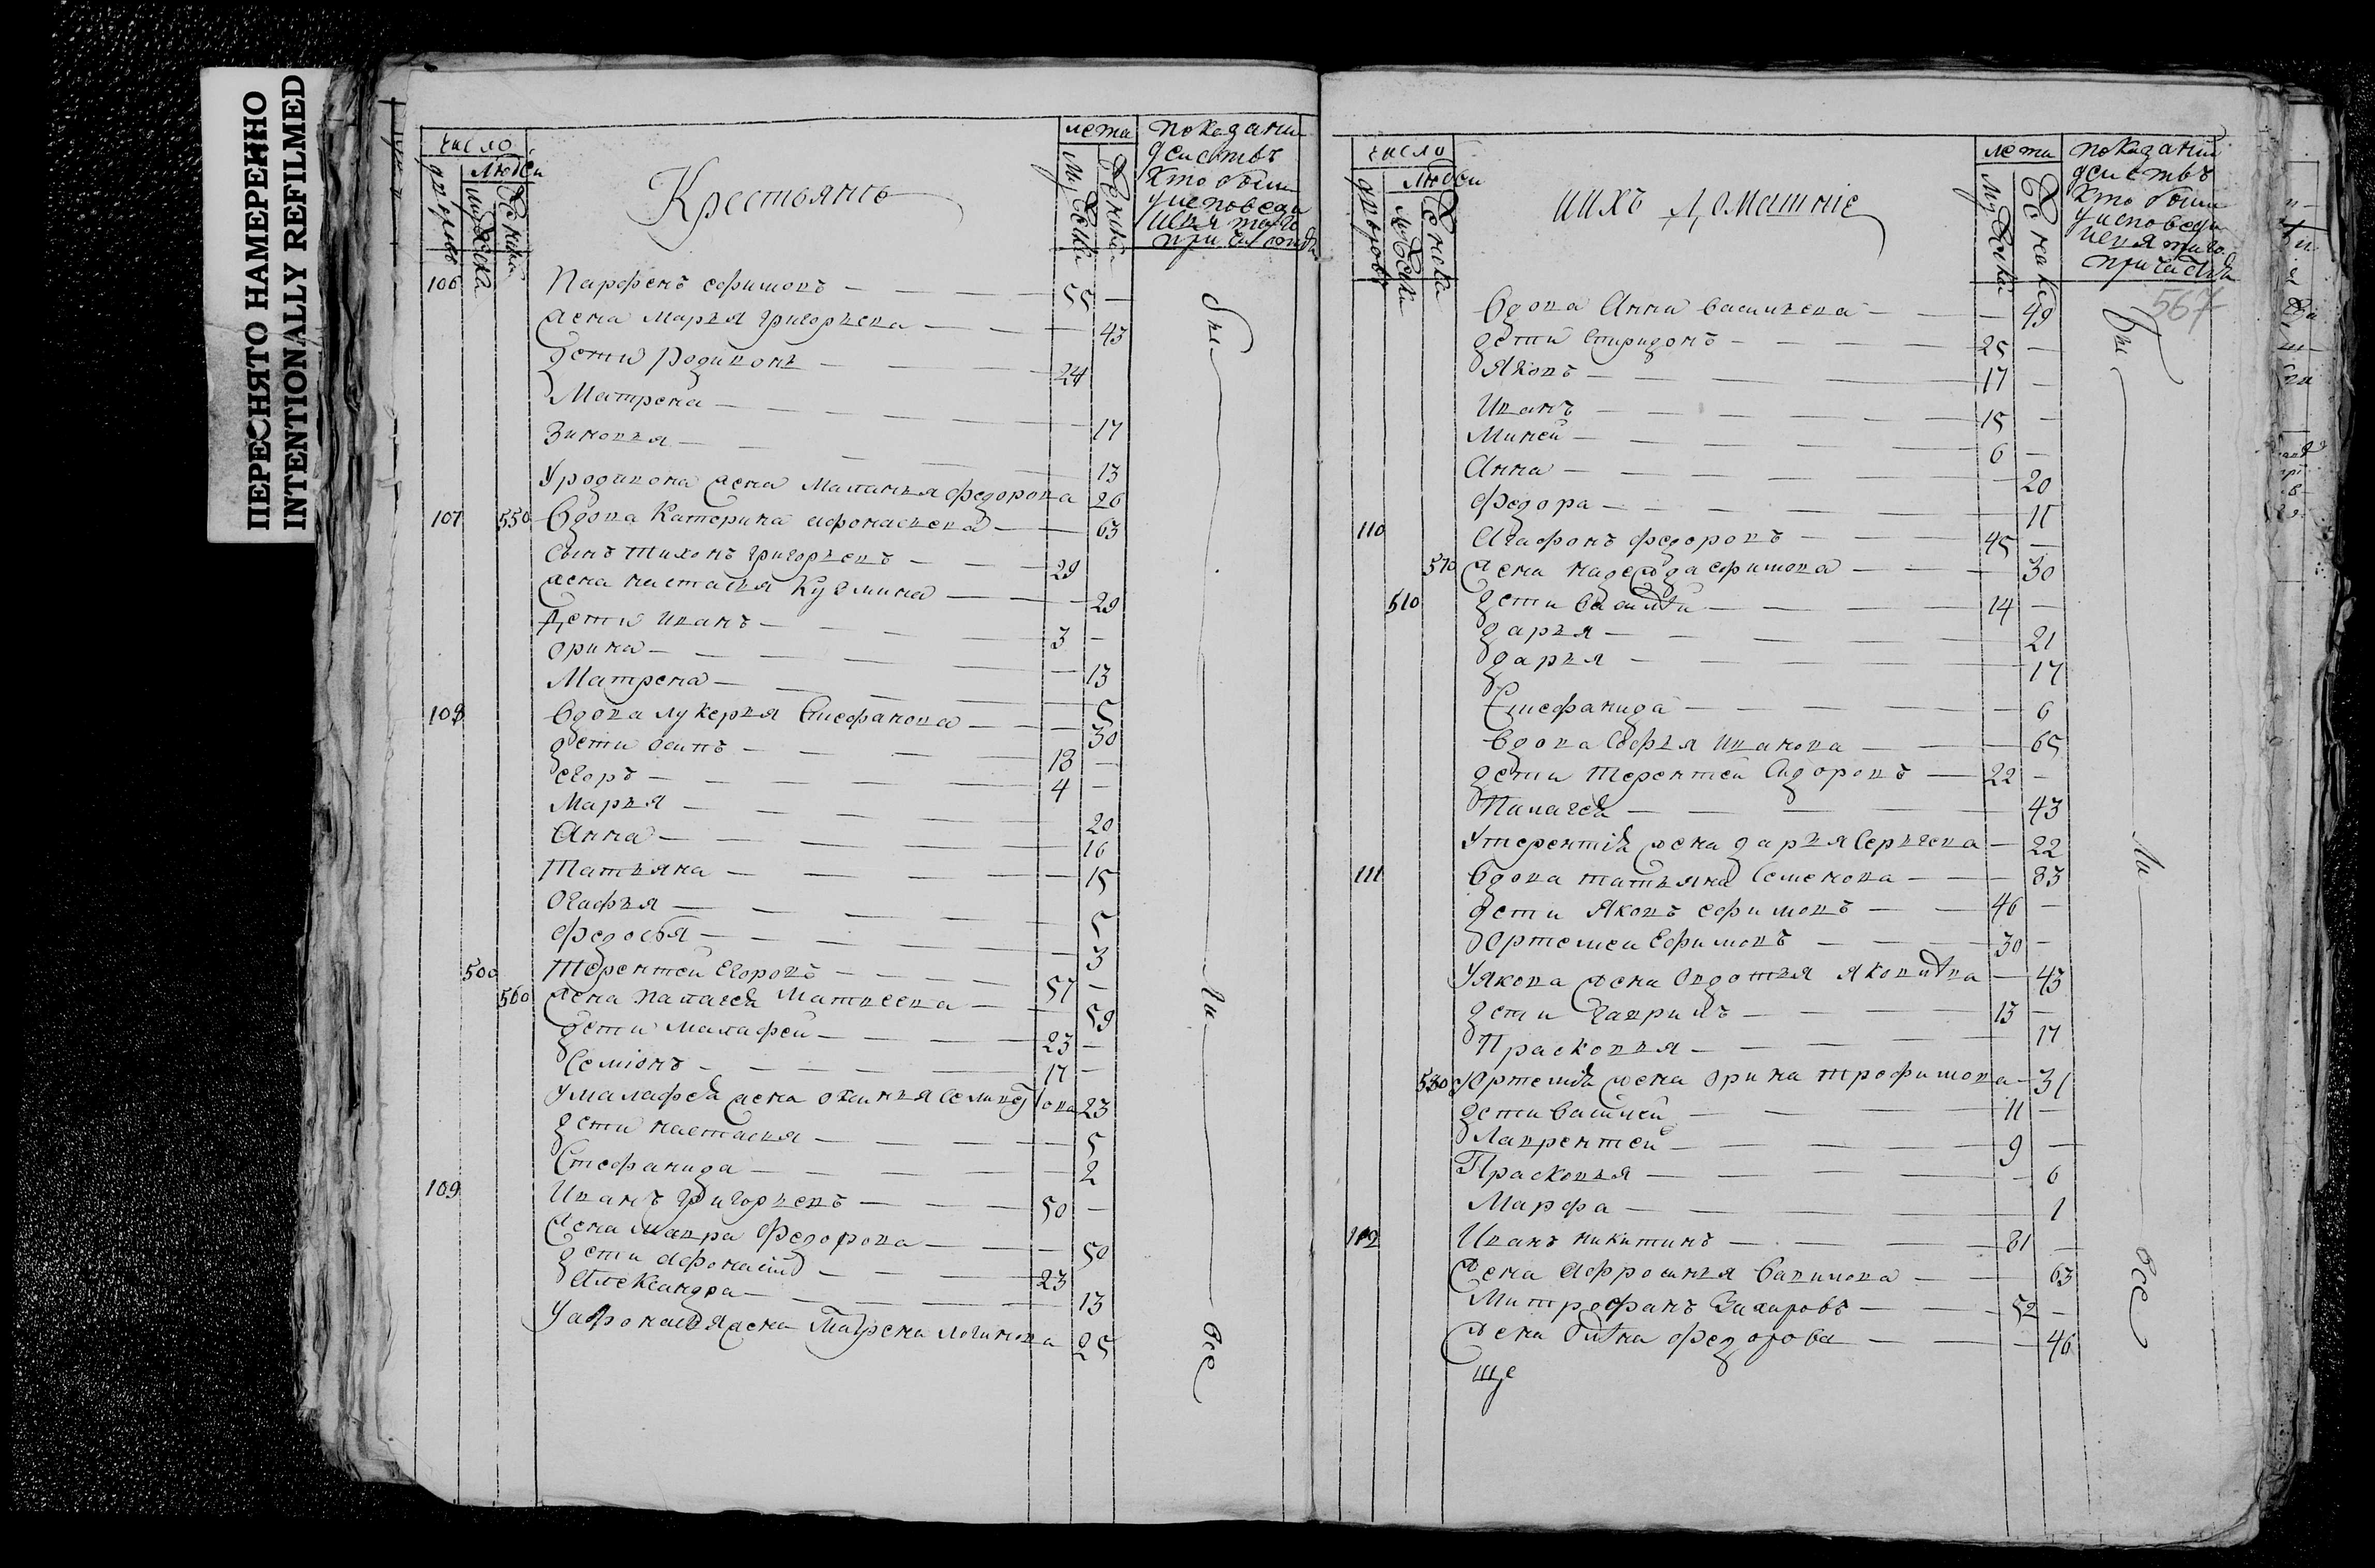 ПЕРЕСНЯТО НАМЕРЕННО
INTENTIONALLY REFILMED
число
людей
дворовъ
мужеска
женска
Крестьянъ
лета
Мужески
Женски
показани
действъ
кто были
у исповеди
и святаго
причастия
106 Парфенъ ефимовъ — 55 —
жена Марья григорьева — 43
дети Родивонъ — 24
Матрена — 17
Зиновья — 13
у родивона жена Маланья федорова 26
107 550 вдова Катерина афонасьева — 63
сынъ тихонъ григорьевъ — 29
жена настасья Кузмина — 29
Дети иванъ — 3 —
орина — 13
Матрена — 5
108 вдова лукерья Стефанова — 30
дети осипъ — 13 —
егоръ — 4 —
Марья — 20
Анна — 16
Татьяна — 15
Огафья — 5
федосья — 3
500 Терентей Егоровъ — 57 —
560 жена палагея Матвеева — 59
дети малафей — 23 —
Семіонъ — 17 —
у малафея жена 23
дети настасья — 5
Стефанида — 2
109 Иванъ григорьевъ — 50 —
жена мавра федорова — 50
дети афонасий — 23
Александра — 13
у афонасья жена Матрена логинова 25
были
ли
все
число
людей
дворовъ
мужески
женски
ИИХЪ Домашніе
лета
Мужески
Женски
показаний
действъ
кто были
у исповеди
и святаго
причастия
567
вдова Анна васильева — 49
дети спиридонъ — 25 —
Яковъ — 17 —
Иванъ — 15 —
Миней — 6 —
Анна — 20
федора — 11
110 Агафонъ федоровъ — 45 —
570 жена надежда ефимова — 30
510 дети василей — 14 —
дарья — 21
дарья — 17
Стефанида — 6
вдова Софья иванова — 65
дети терентей Сидоровъ — 22 —
Палагея — 43
у терентія жена дарья Сергеева — 22
111 вдова татьяна Семенова — 83
дети Яковъ ефимовъ — 46 —
Ортемей Ефимовъ — 30 —
у Якова жена овдотья — 43
дети гаврилъ — 13 —
Прасковья — 17
580 у Ортемія жена орина трофимова — 31
дети василей — 11 —
Лаврентей — 9 —
Прасковья — 6
Марфа — 1
112 Иванъ никитинъ — 81 —
жена Афросинья вавилова — 63
Митрофанъ Захаровъ — 52 —
жена федорова — 46
ще
были
ли
все